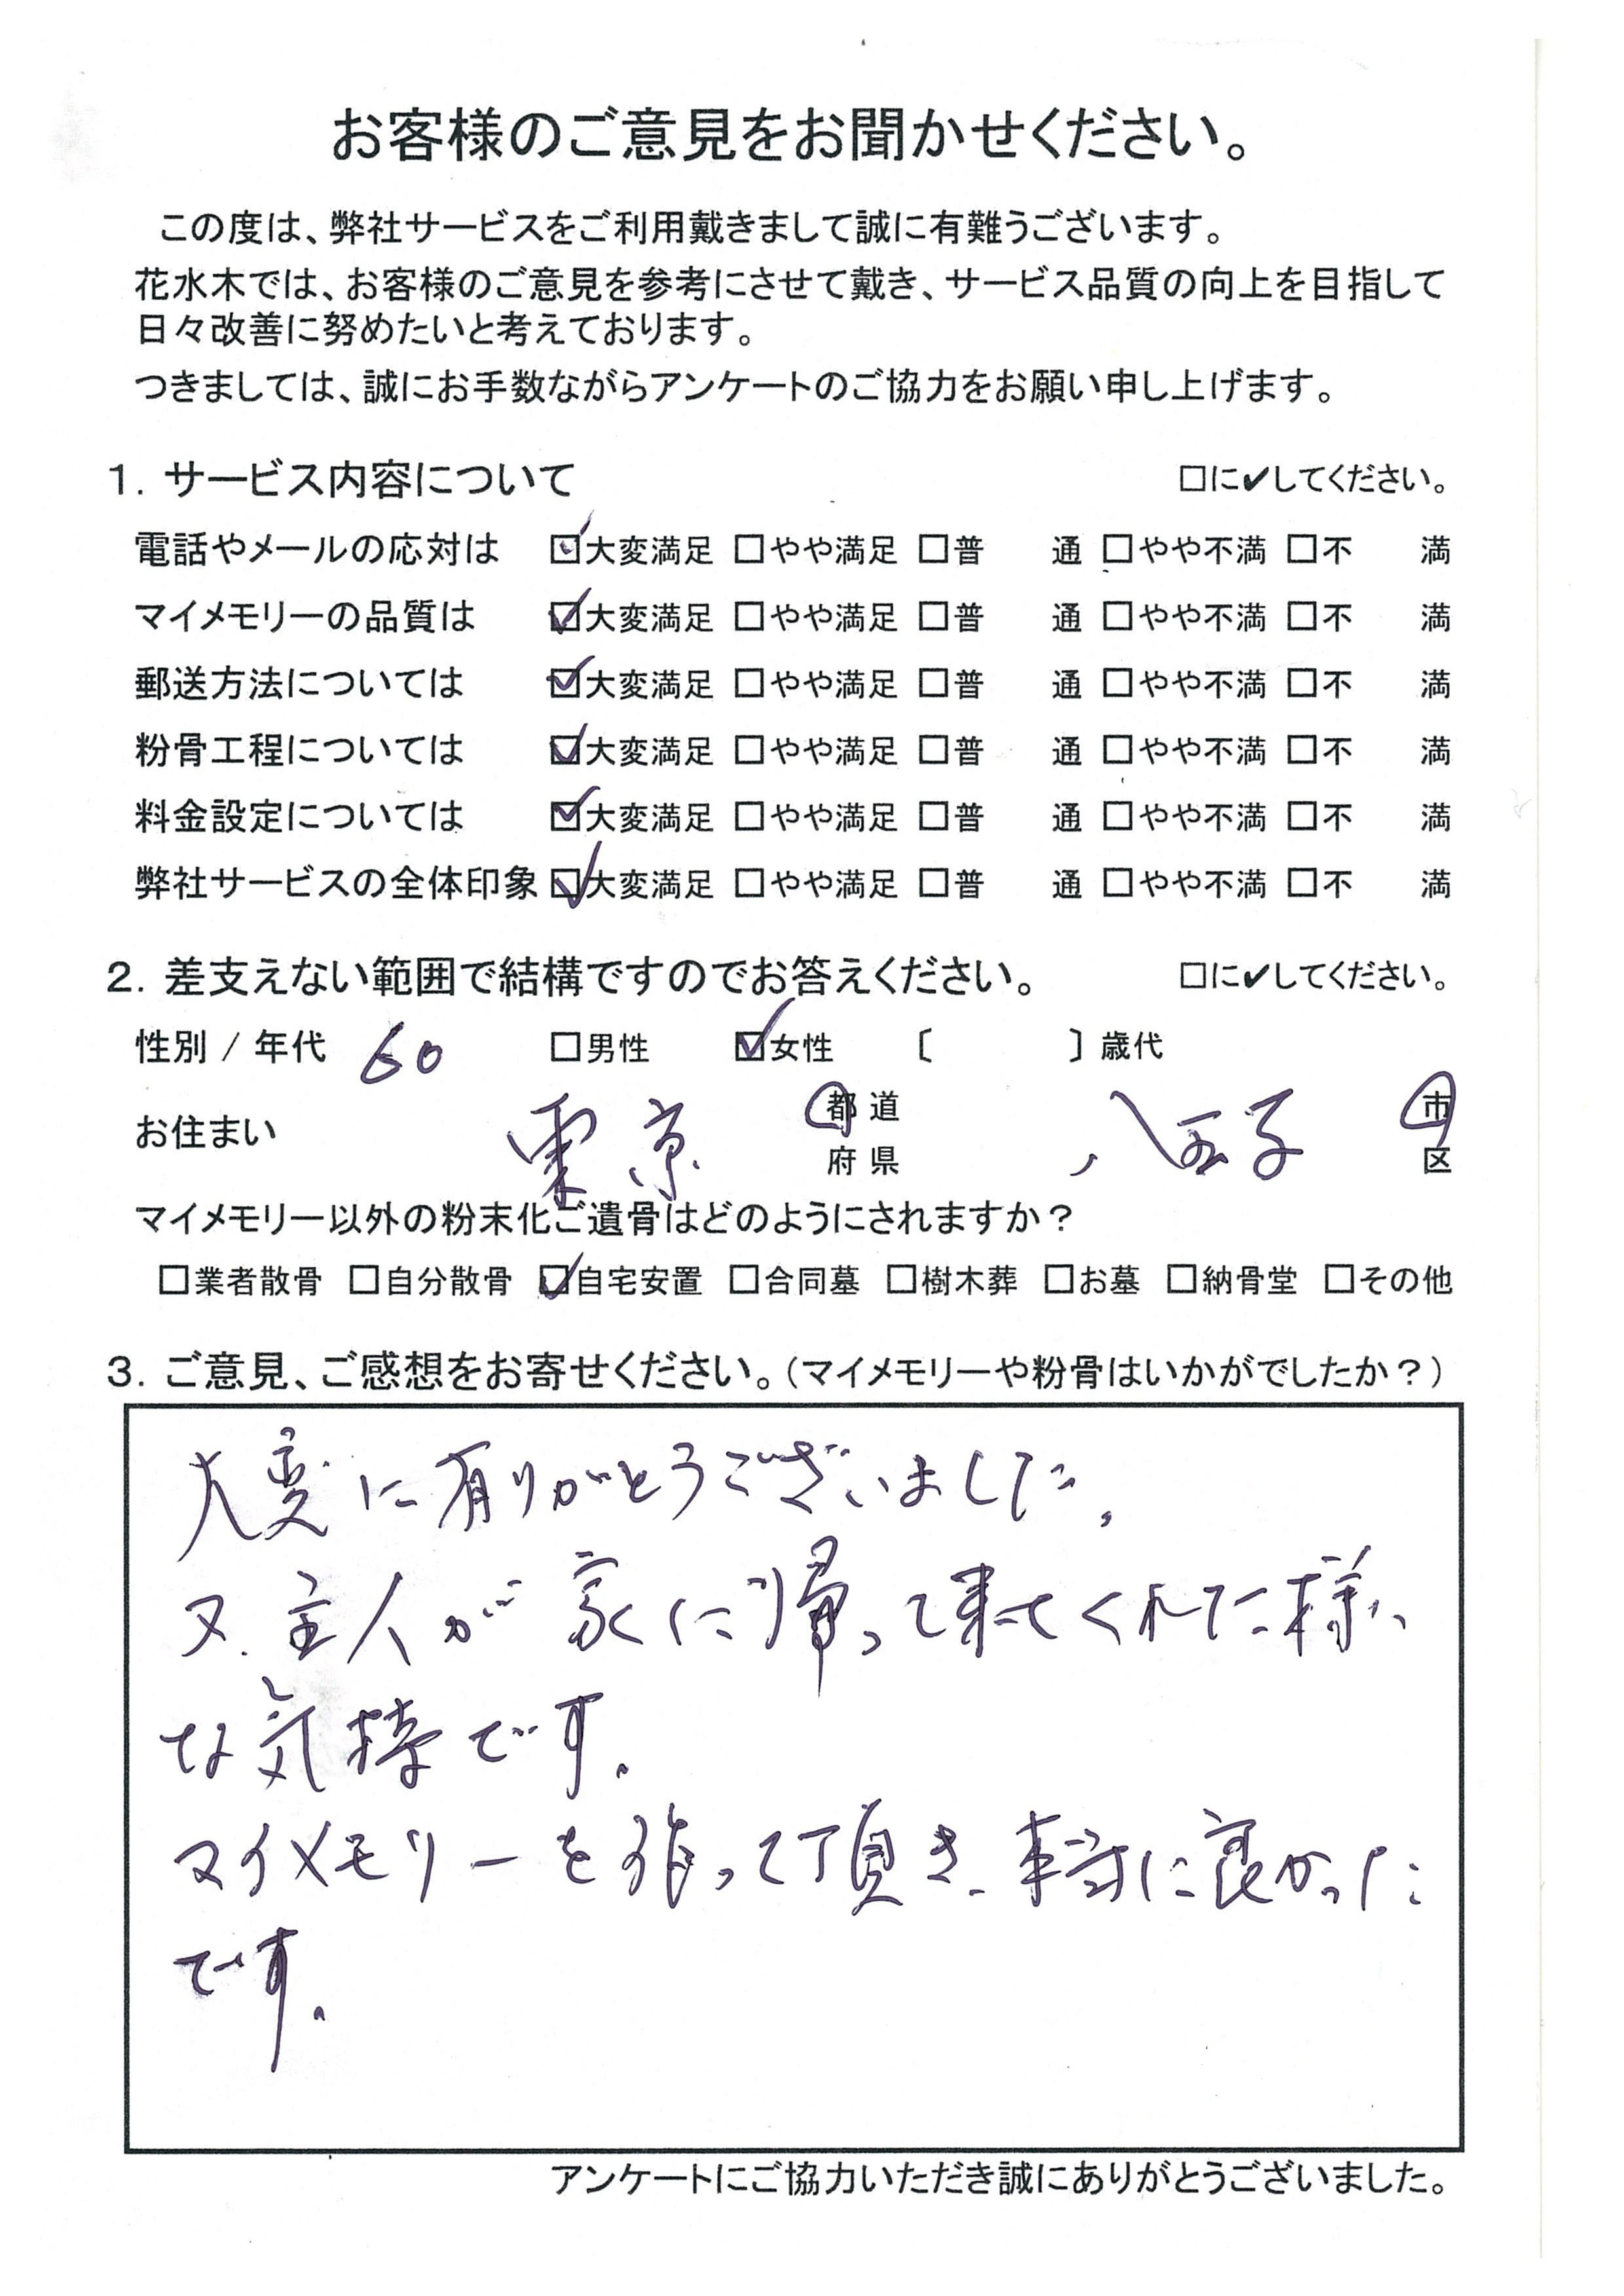 お客様のご意見をお聞かせください。
この度は、弊社サービスをご利用戴きまして誠に有難うございます。
花水木では、お客様のご意見を参考にさせて戴き、サービス品質の向上を目指して
日々改善に努めたいと考えております。
つきましては、誠にお手数ながらアンケートのご協力をお願い申し上げます。
1. サービス内容について □に✔してください。
電話やメールの応対は ☑大変満足 □やや満足 □普 通 □やや不満 □不 満
マイメモリーの品質は ☑大変満足 □やや満足 □普 通 □やや不満 □不 満
郵送方法については ☑大変満足 □やや満足 □普 通 □やや不満 □不 満
粉骨工程については ☑大変満足 □やや満足 □普 通 □やや不満 □不 満
料金設定については ☑大変満足 □やや満足 □普 通 □やや不満 □不 満
弊社サービスの全体印象 ☑大変満足 □やや満足 □普 通 □やや不満 □不 満
2. 差支えない範囲で結構ですのでお答えください。 □に✔してください。
性別 / 年代 60 □男性 ☑女性 〔 〕歳代
お住まい 東京 都道府県 八王子 市区
マイメモリー以外の粉末化ご遺骨はどのようにされますか？
□業者散骨 □自分散骨 ☑自宅安置 □合同墓 □樹木葬 □お墓 □納骨堂 □その他
3. ご意見、ご感想をお寄せください。（マイメモリーや粉骨はいかがでしたか？）
大変に有りがとうございました。
又、主人が家に帰って来てくれた様
な気持です。
マイメモリーを作って頂き、本当に良かった
です。
アンケートにご協力いただき誠にありがとうございました。